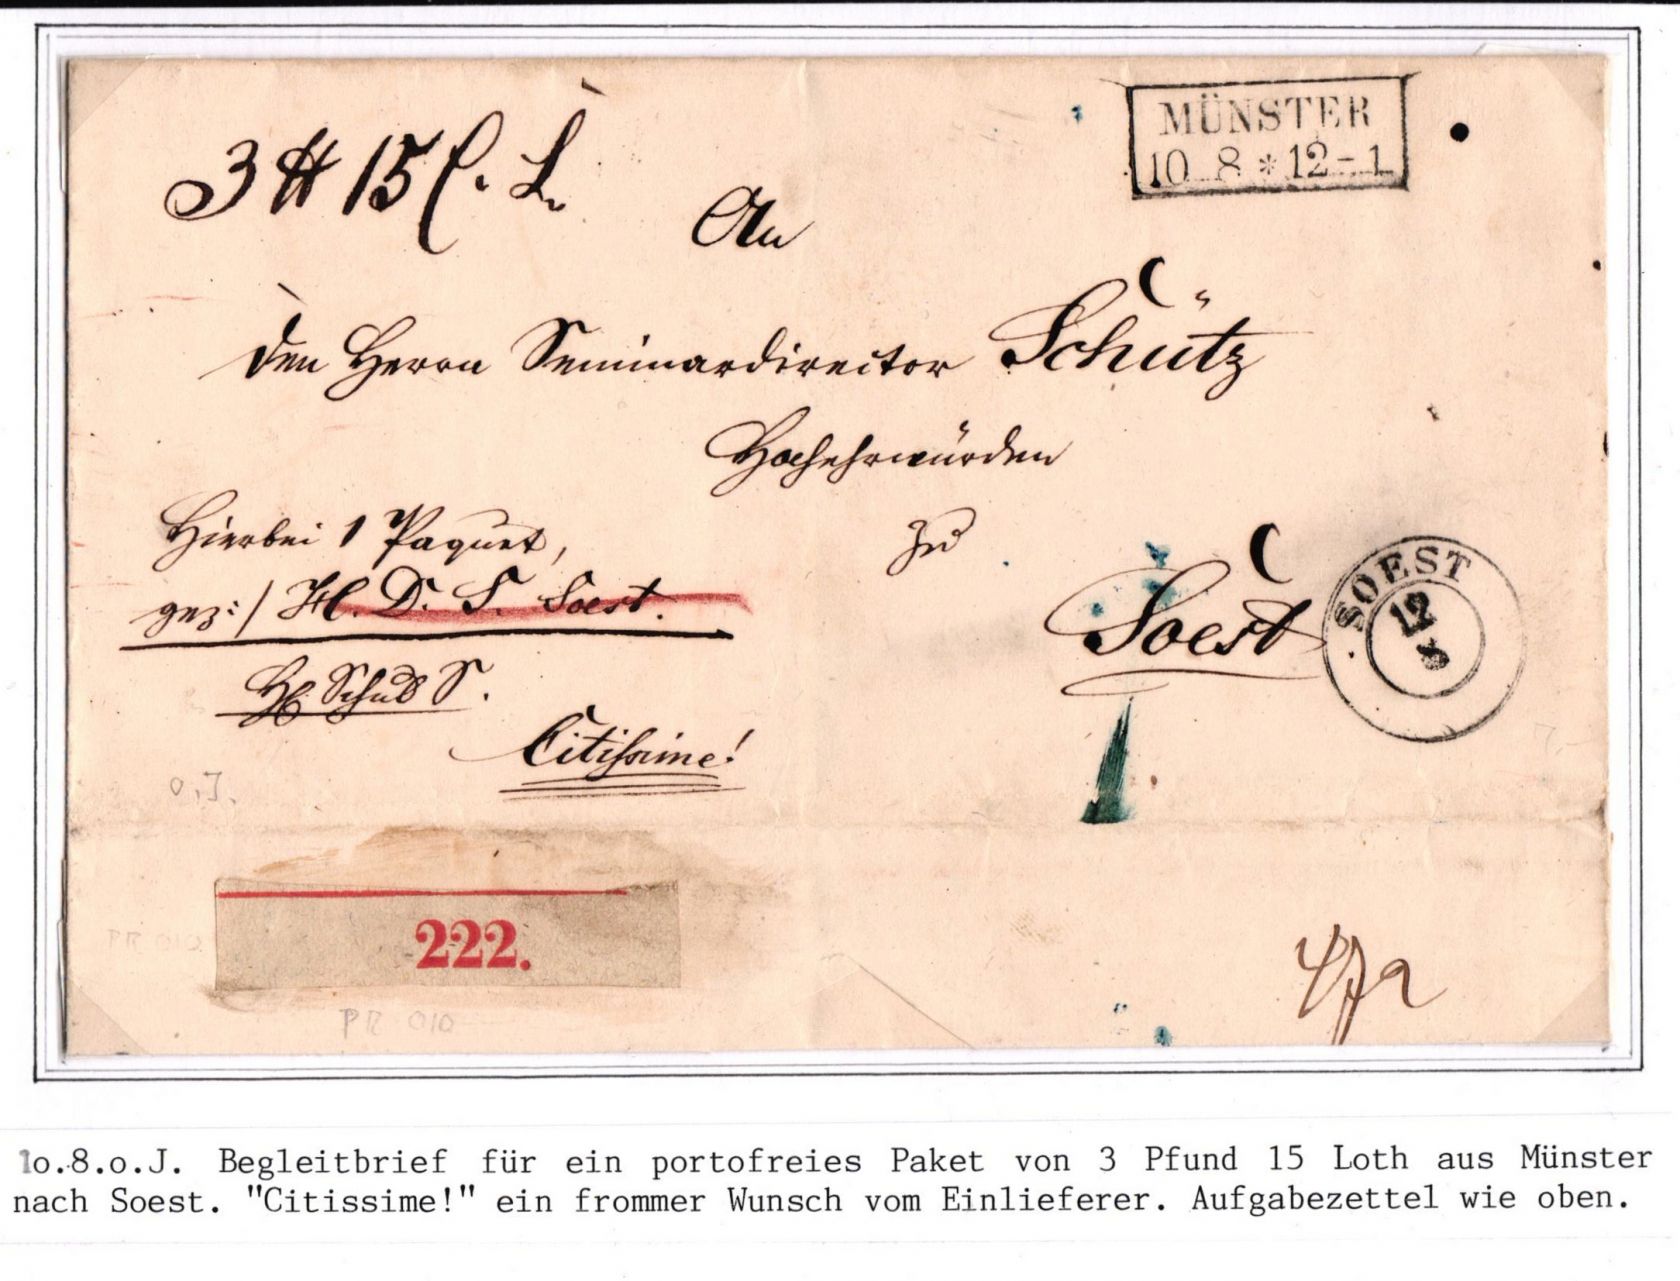 MÜNSTER
10 8 * 12-1
3 ℔ 15 L.
An
den Herrn Seminardirector Schütz
Hochehrwürden
zu
Soest
SOEST
12
8
Hierbei 1 Paquet,
gez:/ H. D. S. Soest.
H. Schul S.
Citissime!
o.J.
222.
PR 010
PR 010
1o.8.o.J. Begleitbrief für ein portofreies Paket von 3 Pfund 15 Loth aus Münster
nach Soest. "Citissime!" ein frommer Wunsch vom Einlieferer. Aufgabezettel wie oben.